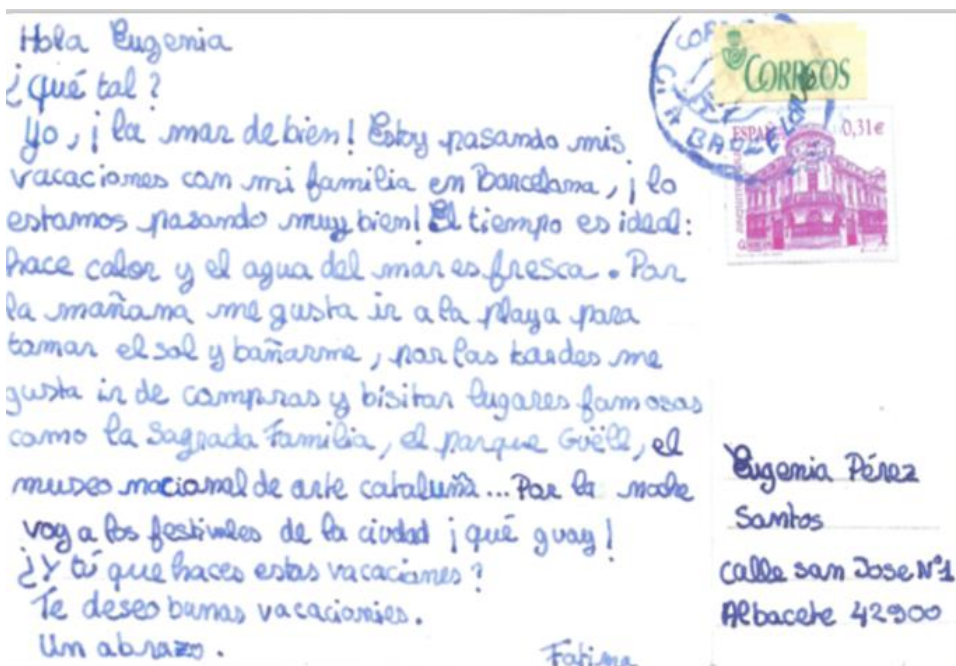 Hola Eugenia
¿qué tal?
Yo, ¡la mar de bien! Estoy pasando mis
vacaciones con mi familia en Barcelona, ¡lo
estamos pasando muy bien! El tiempo es ideal:
hace calor y el agua del mar es fresca. Por
la mañana me gusta ir a la playa para
tomar el sol y bañarme, por las tardes me
gusta ir de compras y bisitar lugares famosos
como la Sagrada Familia, el parque Güell, el
museo nacional de arte cataluña... Por la noche
voy a los festivales de la ciudad ¡qué guay!
¿Y tú que haces estas vacaciones?
Te deseo bunas vacaciones.
Un abrazo.
Fatima
CORREOS
ESPAÑA 0,31€
Eugenia Pérez
Santos
calle san Jose Nº1
Albacete 42900